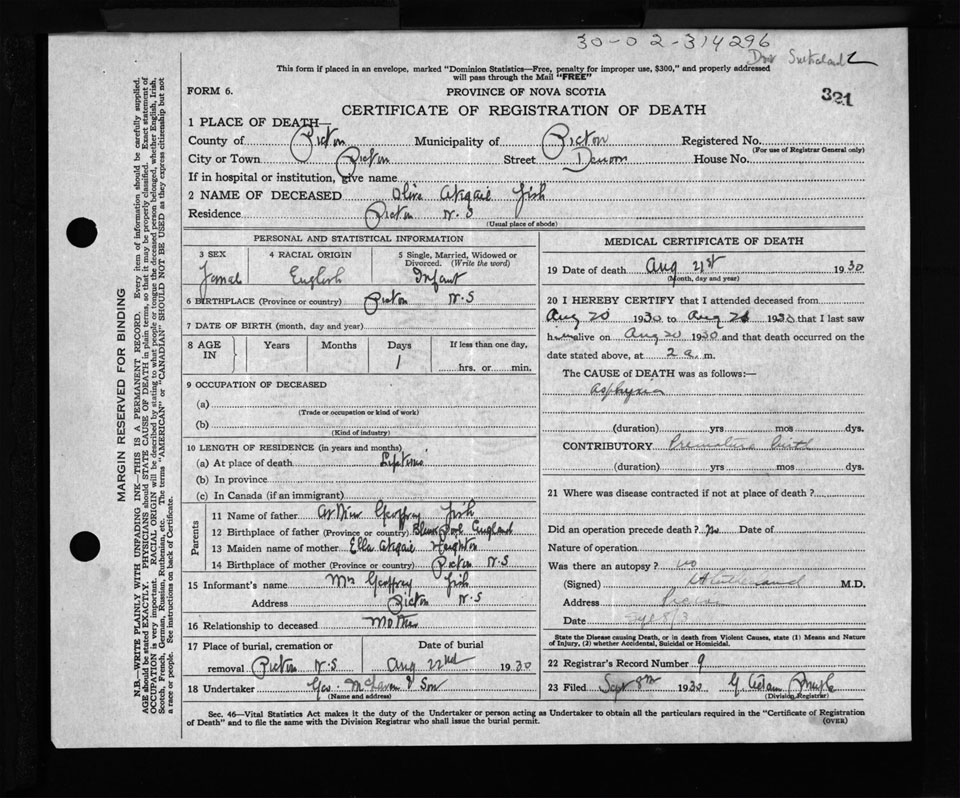 30-02-314296
This form if placed in an envelope, marked "Dominion Statistics—Free, penalty for improper use, $300," and properly addressed
will pass through the Mail "FREE"
FORM 6. PROVINCE OF NOVA SCOTIA 321
CERTIFICATE OF REGISTRATION OF DEATH
1 PLACE OF DEATH—
County of Pictou Municipality of Pictou Registered No.
(For use of Registrar General only)
City or Town Pictou Street Denoon House No.
If in hospital or institution, give name
2 NAME OF DECEASED Olive Abigail Fish
Residence Pictou N.S
(Usual place of abode)
PERSONAL AND STATISTICAL INFORMATION
3 SEX 4 RACIAL ORIGIN 5 Single, Married, Widowed or
Divorced. (Write the word)
Femal English Infant
6 BIRTHPLACE (Province or country) Pictou N.S
7 DATE OF BIRTH (month, day and year)
8 AGE IN Years Months Days If less than one day,
1 hrs. or min.
9 OCCUPATION OF DECEASED
(a)
(Trade or occupation or kind of work)
(b)
(Kind of industry)
10 LENGTH OF RESIDENCE (in years and months)
(a) At place of death Lifetime
(b) In province
(c) In Canada (if an immigrant)
Parents
11 Name of father Geoffrey Fish
12 Birthplace of father (Province or country) England
13 Maiden name of mother Ella Abigail Heighton
14 Birthplace of mother (Province or country) Pictou N.S
15 Informant's name Mrs Geoffrey Fish
Address Pictou N.S
16 Relationship to deceased Mother
17 Place of burial, cremation or Date of burial
removal Pictou N.S Aug 22nd 1930
18 Undertaker Geo. McLaren & Son
(Name and address)
MEDICAL CERTIFICATE OF DEATH
19 Date of death Aug 21st 1930
(Month, day and year)
20 I HEREBY CERTIFY that I attended deceased from
Aug 20 1930 to Aug 21 1930 that I last saw
h alive on Aug 20 1930 and that death occurred on the
date stated above, at 2 a. m.
The CAUSE of DEATH was as follows:—
Asphyxia
(duration) yrs mos dys.
CONTRIBUTORY Premature birth
(duration) yrs mos dys.
21 Where was disease contracted if not at place of death?
Did an operation precede death? No Date of
Nature of operation
Was there an autopsy? No
(Signed) M.D.
Address Pictou
Date
State the Disease causing Death, or in death from Violent Causes, state (1) Means and Nature
of Injury, (2) whether Accidental, Suicidal or Homicidal.
22 Registrar's Record Number 9
23 Filed Sept 8th 1930 G.
(Division Registrar)
Sec. 46—Vital Statistics Act makes it the duty of the Undertaker or person acting as Undertaker to obtain all the particulars required in the "Certificate of Registration
of Death" and to file the same with the Division Registrar who shall issue the burial permit. (OVER)
MARGIN RESERVED FOR BINDING
N.B.—WRITE PLAINLY WITH UNFADING INK—THIS IS A PERMANENT RECORD. Every item of information should be carefully supplied.
AGE should be stated EXACTLY. PHYSICIANS should STATE CAUSE OF DEATH in plain terms, so that it may be properly classified. Exact statement of
OCCUPATION is very important. RACIAL ORIGIN will be described by stating to what people or tongue the deceased person belonged, whether English, Irish,
Scotch, French, German, Russian, Ruthenian, etc. The terms "AMERICAN" or "CANADIAN" SHOULD NOT BE USED as they express citizenship but not
a race or people. See instructions on back of Certificate.